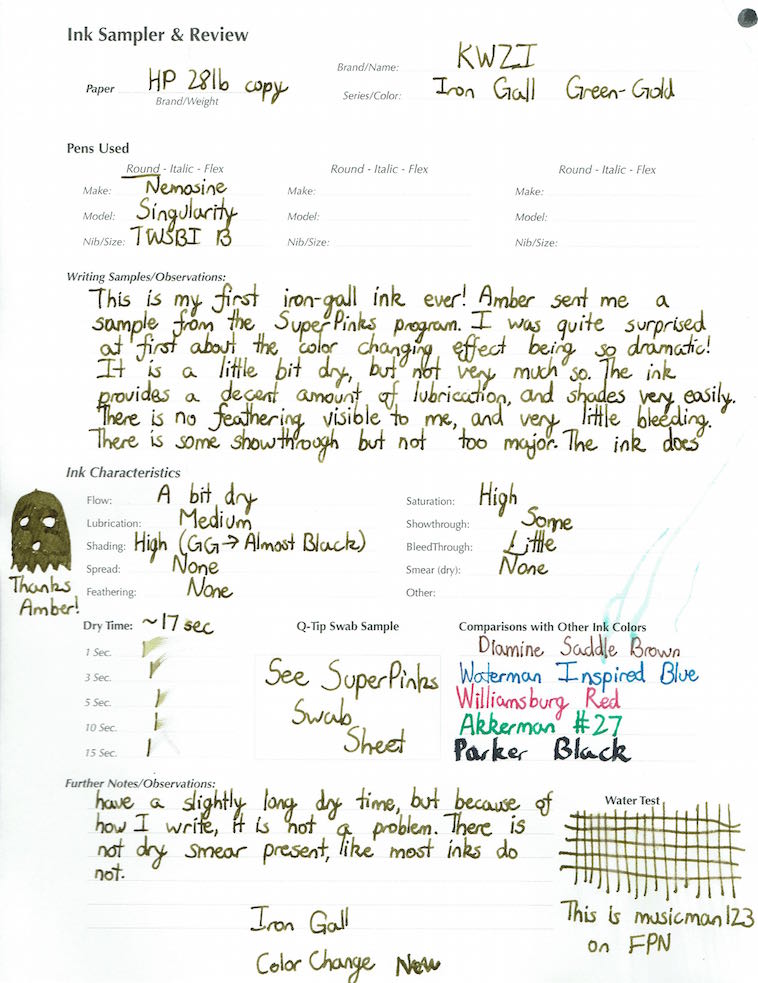 Ink Sampler & Review
Brand/Name: KWZI
Paper HP 28lb copy
Brand/Weight
Series/Color: Iron Gall Green-Gold
Pens Used
Round - Italic - Flex Round - Italic - Flex Round - Italic - Flex
Make: Nemosine Make: Make:
Model: Singularity Model: Model:
Nib/Size: TWSBI B Nib/Size: Nib/Size:
Writing Samples/Observations:
This is my first iron-gall ink ever! Amber sent me a
sample from the SuperPinks program. I was quite surprised
at first about the color changing effect being so dramatic!
It is a little bit dry, but not very much so. The ink
provides a decent amount of lubrication, and shades very easily.
There is no feathering visible to me, and very little bleeding.
There is some showthrough but not too major. The ink does
Ink Characteristics
Flow: A bit dry Saturation: High
Lubrication: Medium Showthrough: Some
Shading: High (GG → Almost Black) BleedThrough: Little
Spread: None Smear (dry): None
Feathering: None Other:
Thanks
Amber!
Dry Time: ~17 sec
1 Sec.
3 Sec.
5 Sec.
10 Sec.
15 Sec.
Q-Tip Swab Sample
See SuperPinks
Swab
Sheet
Comparisons with Other Ink Colors
Diamine Saddle Brown
Waterman Inspired Blue
Williamsburg Red
Akkerman #27
Parker Black
Further Notes/Observations:
have a slightly long dry time, but because of
how I write, it is not a problem. There is
not dry smear present, like most inks do
not.
Iron Gall
Color Change New
Water Test
This is musicman123
on FPN